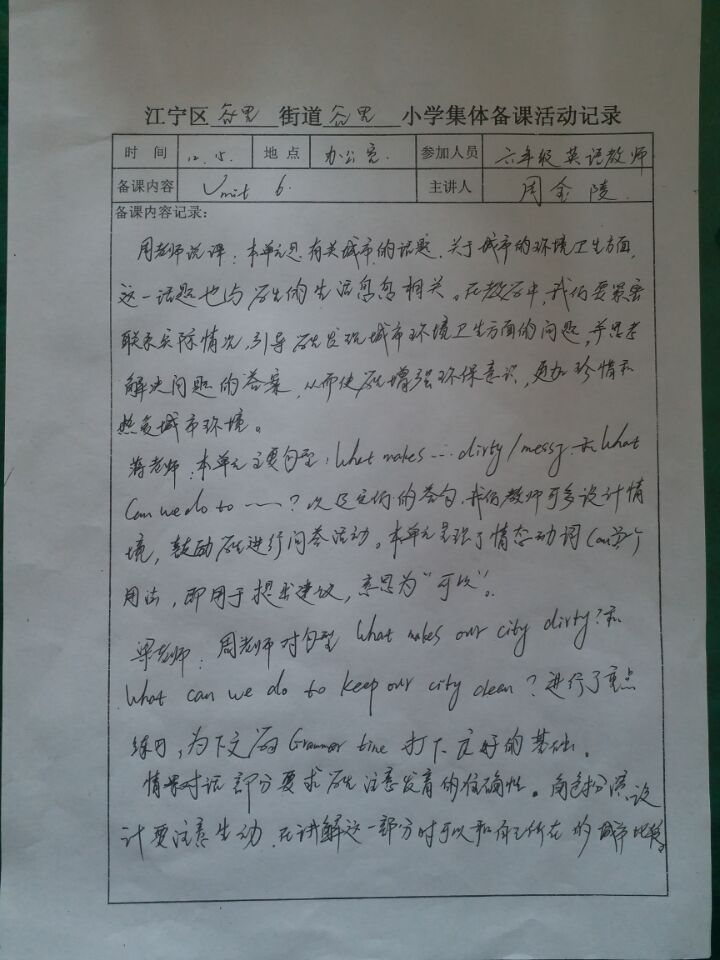 江宁区 谷里 街道 谷里 小学集体备课活动记录
时 间 12.15. 地 点 办公室. 参加人员 六年级英语教师
备课内容 Unit 6. 主讲人 周金陵.
备课内容记录:
周老师说课:本单元是有关城市的话题.关于城市的环境卫生方面,
这一话题也与学生的生活息息相关。在教学中,我们要紧密
联系实际情况,引导学生发现城市环境卫生方面的问题,并思考
解决问题的答案,从而使学生增强环保意识,更加珍惜和
热爱城市环境。
蒋老师:本单元主要句型:What makes … dirty/messy.和What
Can we do to ……?以及它们的答句.我们教师可多设计情
境,鼓励学生进行问答活动。本单元呈现了情态动词Can这个
用法,即用于提出建议,意思为“可以”。
梁老师:周老师对句型 What makes our city dirty?和
What can we do to keep our city clean?进行了重点
练习,为下文的Grammar time 打下良好的基础。
情景对话部分要求学生注意发音的准确性。角色扮演设
计要注意生动.在讲解这一部分时可以和自己所在的城市比较。